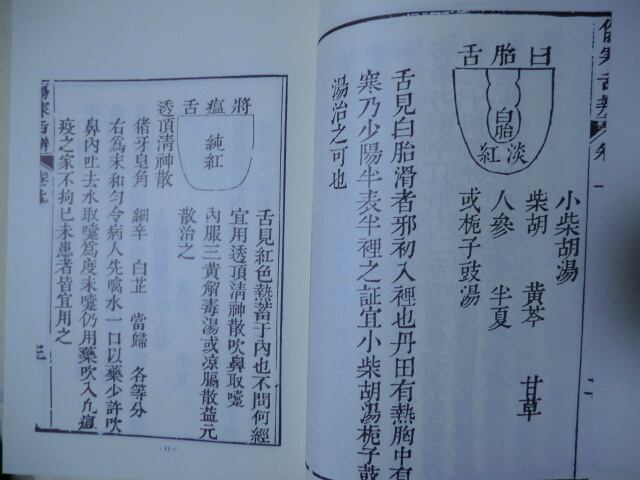 白胎舌
白胎
淡紅
小柴胡湯
柴胡　黃芩　甘草
人參　半夏
或梔子豉湯
舌見白胎滑者邪初入裡也丹田有熱胸中有
寒乃少陽半表半裡之証宜小柴胡湯梔子豉
湯治之可也
二
將瘟舌
純紅
舌見紅色熱蓄于內也不問何經
宜用透頂清神散吹鼻取嚏
內服三黃解毒湯或凉膈散益元
散治之
透頂清神散
猪牙皂角　細辛　白芷　當歸　各等分
右為末和勻令病人先噙水一口以藥少許吹
鼻內吐去水取嚏為度未嚏仍用藥吹入凡瘟
疫之家不拘已未患者皆宜用之
三
傷寒舌辨
—11—